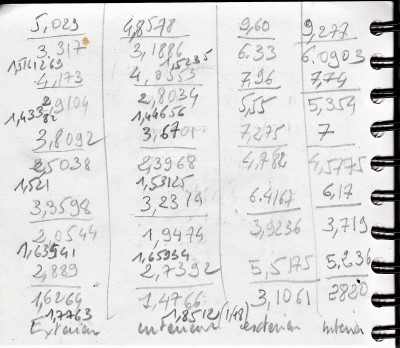 5,023 4,8578 9,60 9,277
3,317 3,1886 6.33 6.0903
1,514269 1,5235
4,173 4,0553 7,96 7,74
2,9104 2,8034 5,55 5,354
1,43382 1,44656
3,8092 3,6701 7,275 7
2,5038 2,3968 4,782 4,5775
1,521 1,53125
3,3598 3,2319 6.4167 6,17
2,0544 1,9474 3,9236 3,719
1,63541 1,65934
2,889 2,7392 5,5175 5,236
1,6264 1,4766 3,1061 2820
1,7763 1,8512 (1/48)
Exterior interior exterior interior